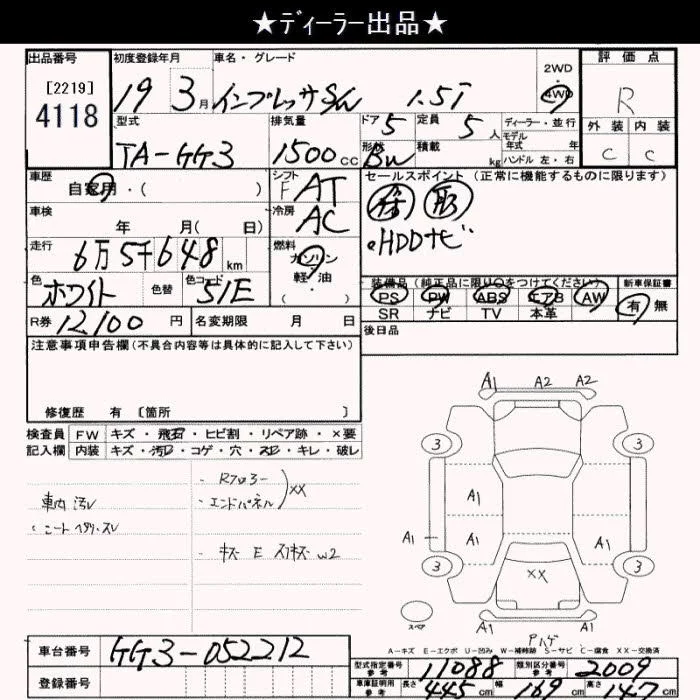 ★ディーラー出品★
出品番号 初度登録年月 車名・グレード 評価点
[2219] 2WD
4118 19 3月 インプレッサSW 1.5i 4WD R
型式 排気量 ドア 5 定員 5人 ディーラー・並行 外装 内装
モデル年式 年
TA-GG3 1500cc 形状 BW 積載 kg ハンドル 左・右 C C
車歴 シフト セールスポイント (正常に機能するものに限ります)
自家用・( ) F AT 保 取
車検 冷房
年 月( 日) AC HDDナビ
走行 燃料
6万5千648km ガソリン
軽・油
( )
装備品(純正品に限り○をつけてください) 新車保証書
色 ホワイト 色替 色コード 51E PS PW ABS エアB AW 有 無
SR ナビ TV 本革
R券 12100円 名変期限 月 日 後日品
注意事項申告欄(不具合内容等は具体的に記入して下さい)
修復歴 有 [箇所 ]
検査員 FW キズ・飛石・ヒビ割・リペア跡・×要
記入欄 内装 キズ・汚レ・コゲ・穴・スレ・キレ・破レ
A1 A2 A2
3 3
・Rフロアー
・エンドパネル XX
車内汚レ
A1
A1 A1 A1
・キズ E スリキズ W2
3 3
XX
スペア
A1 A1
A-キズ E-エクボ U-凹み W-補修跡 S-サビ C-腐食 XX-交換済
車台番号 GG3-052212
型式指定番号 参考 11088 類別区分番号 参考 2009
登録番号 車庫証明用 参考 長さ 445cm 幅 169cm 高さ 147cm